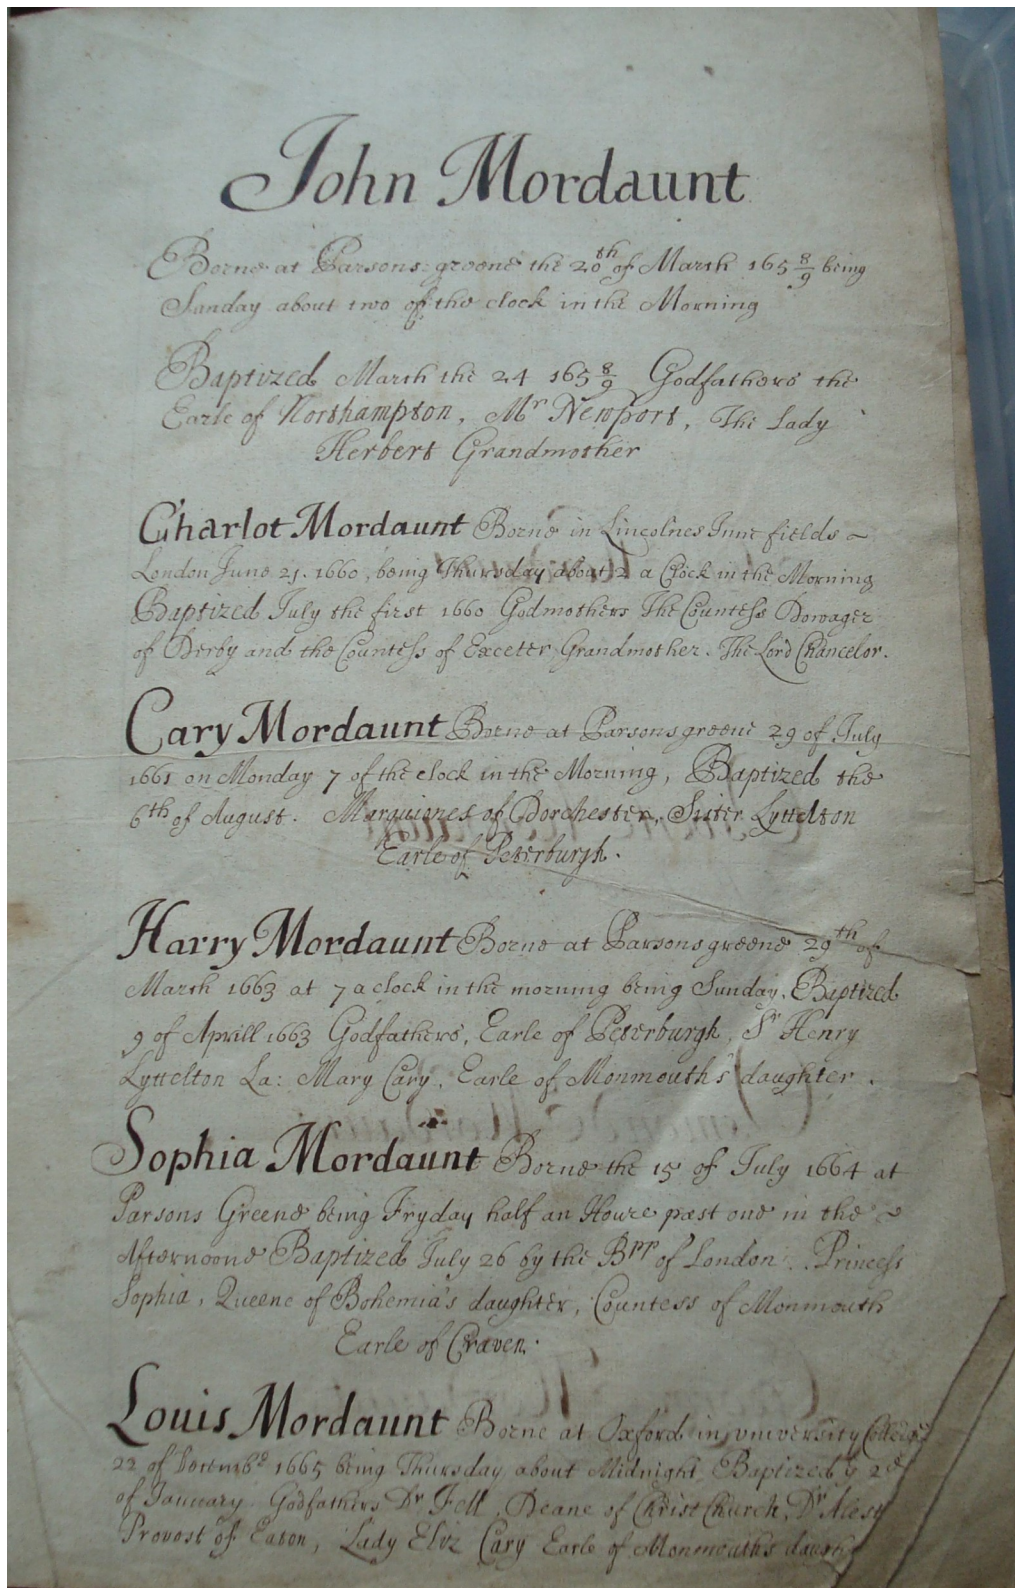 John Mordaunt
Borne at Parsons:greene the 20th of March 165 8/9 being
Sunday about two of the clock in the Morning
Baptized March the 24 165 8/9 Godfathers the
Earle of Northampton, Mr Newport, The Lady
Herbert Grandmother
Charlot Mordaunt Borne in Lincolnes Inne fields
London June 21. 1660, being Thursday about 2 a Clock in the Morning
Baptized July the first 1660 Godmothers The Countess Dowager
of Derby and the Countess of Exceter Grandmother. The Lord Chancelor.
Cary Mordaunt Borne at Parsonsgreene 29 of July
1661 on Monday 7 of the clock in the Morning, Baptized the
6th of August. Marquiones of Dorchester, Sister Lyttelton
Earle of Peterburgh.
Harry Mordaunt Borne at Parsonsgreene 29th of
March 1663 at 7 a clock in the morning being Sunday, Baptized
9 of Aprill 1663 Godfathers, Earle of Peterburgh, Sr Henry
Lyttelton La: Mary Cary, Earle of Monmouth's daughter.
Sophia Mordaunt Borne the 15 of July 1664 at
Parsons Greene being Fryday half an Houre past one in the
Afternoone Baptized July 26 by the Bpp of London. Princess
Sophia, Queene of Bohemia's daughter, Countess of Monmouth
Earle of Craven.
Louis Mordaunt Borne at Oxford in vniversity Colledge
22 of Decembe 1665 being Thursday about Midnight, Baptized ye 2d
of January. Godfathers Dr Fell, Deane of Christ Church, Dr Alest
Provost of Eaton, Lady Eliz Cary Earle of Monmouth's daugh